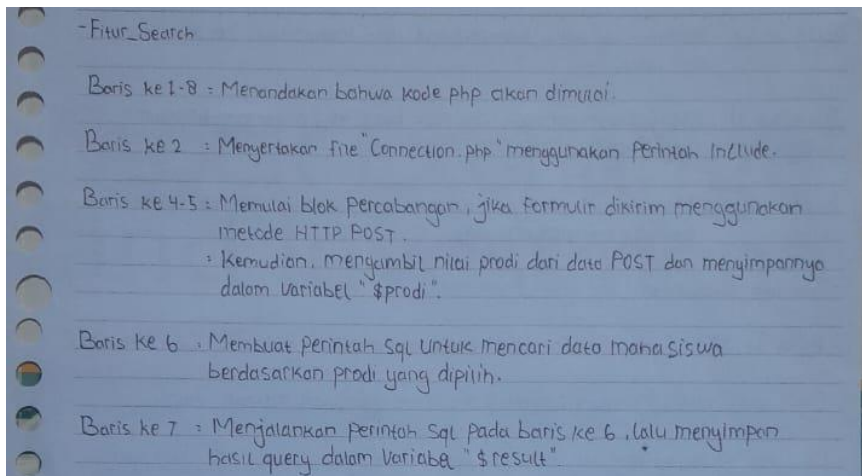 - Fitur_Search
Baris ke 1-8 : Menandakan bahwa kode php akan dimulai.
Baris ke 2 : Menyertakan file "Connection.php" menggunakan Perintah Include.
Baris ke 4-5 : Memulai blok percabangan, jika formulir dikirim menggunakan
metode HTTP POST.
: Kemudian, mengambil nilai prodi dari data POST dan menyimpannya
dalam variabel "$prodi".
Baris ke 6 : Membuat perintah Sql untuk mencari data mahasiswa
berdasarkan prodi yang dipilih.
Baris ke 7 : Menjalankan perintah Sql pada baris ke 6, lalu menyimpan
hasil query dalam variabel "$result"